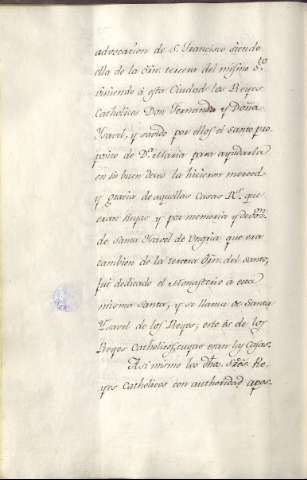 advocacion de S. Francisco siendo
ella de la Orn. tercera del mismo Sto.
viniendo à esta Ciudad los Reyes
Catholicos Don Fernando y Doña
Ysavel, y savido por ellos el santo pro
posito de Da. Maria para ayudarla
en su buen deseo la hicieron merced
y gracia de aquellas Casas Rs. que
eran suyas y por memoria y devon.
de Santa Ysavel de Ungria que era
tambien de la tercera Orn. del santo,
fué dedicado el Monasterio à esta
misma Santa, y se llama de Santa
Ysavel de los Reyes, esto és de los
Reyes Catholicos, cuyas eran las Casas.
Asi mismo los dhos. Sres. Re-
yes Catholicos con authoridad apos-